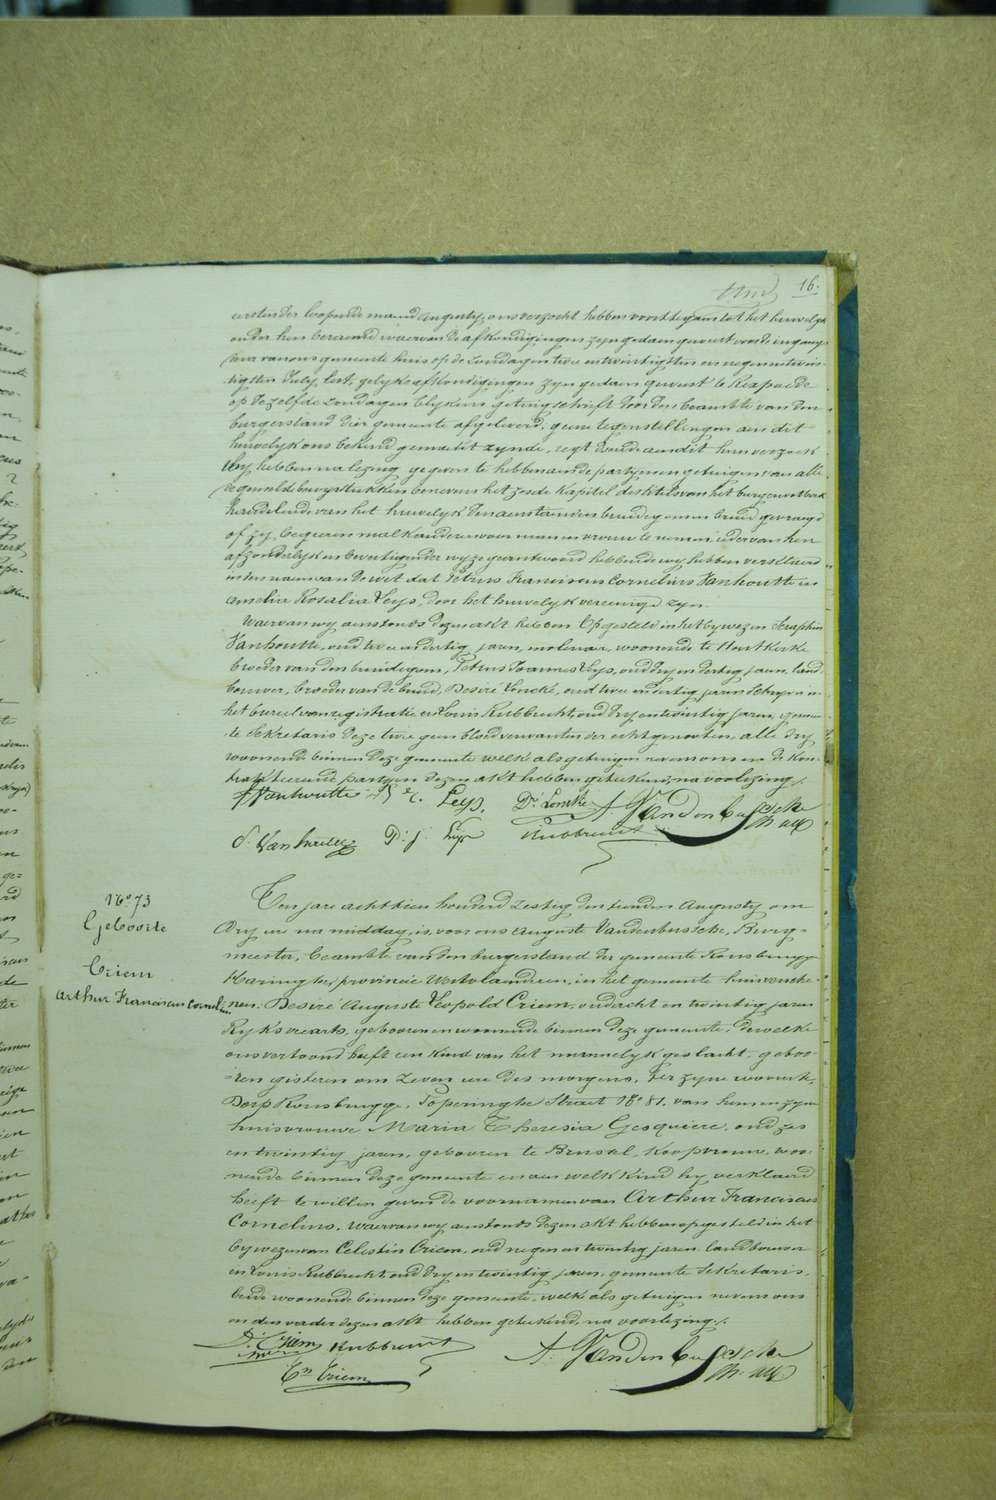 16.
eersten der loopende maend Augusty, ons verzocht hebben voort te gaen tot het huwelyk
onder hen beraemd waervan de afkondigingen zyn gedaen geweest voor de ingang-
deur van ons gemeente huis op de zondagen twee en twintigsten en negen en twin-
tigsten July lest, gelyke afkondigingen zyn gedaen geweest te Rexpoede
op de zelfde zondagen blykens getuigschrift door den beambte van den
burgerstand dier gemeente afgeleverd, geene tegenstellingen aen dit
huwelyk ons bekend gemaekt zynde, regt doende aen dit hun verzoek
Wy hebben na lezing gegeven te hebben aen de partyen en getuigen van alle
de gemelde bewysstukken benevens het zesde kapitel des titels van het burgerwetboek
handelende van het huwelyk den aenstaenden bruidegom en bruid gevraegd
of zy begeeren malkanderen voor man en vrouw te nemen, ieder van hen
afzonderlyk en bevestigender wyze geantwoord hebbende wy hebben verklaerd
in den naem van de wet dat Petrus Franciscus Cornelius Vanhoutte en
Amelia Rosalia Leys, door het huwelyk vereenigd zyn.
Waervan wy aenstonds dezen akt hebben opgesteld in het bywezen Seraphin
Vanhoutte, oud twee en dertig jaren, molenaer, woonende te Houtkerke
broeder van den bruidegom, Petrus Joannes Leys, oud dry en dertig jaren, land-
bouwer, broeder van de bruid, Desiré Loncke, oud twee en dertig jaren schryver in
het bureel van registratie en Louis Rubbrecht, oud dry en twintig jaren, gemeen-
te Sekretaris deze twee geen bloedverwanten der echtgenooten, alle dry
woonende binnen deze gemeente welk als getuigen nevens ons en de kon-
trakteerende partyen dezen akt hebben geteekend, na voorlezing.
Vanhoutte Leys. D. Loncke A. Vandenbussche
S. Vanhoutte P. J. Leys Rubbrecht
N° 73
Geboorte
Criem
Arthur Franciscus Cornelius
Ten jare achttien honderd zestig den tienden Augusty om
dry ure na middag, is, voor ons Auguste Vandenbussche, Burg-
meester, beambte van den burgerstand der gemeente Rousbrugge
Haringhe, provincie Westvlanderen, in het gemeente huis versche-
nen. Desiré Auguste Leopold Criem, oud acht en twintig jaren
Ryks veearts, geboren en woonende binnen deze gemeente, dewelke
ons vertoond heeft een kind van het mannelyk geslacht, geboo-
ren gisteren om zeven ure des morgens, ter zyne woonst,
Dorp Rousbrugge, Poperinghe Straet N° 81. van hem en zyne
huisvrouwe Maria Theresia Gesquiere, oud zes
en twintig jaren, geboren te Brussel, koopvrouw, woo-
nende binnen deze gemeente en aen welk kind hy verklaerd
heeft te willen geven de voornamen van Arthur Franciscus
Cornelius. Waervan wy aenstonds dezen akt hebben opgesteld in het
bywezen van Celestin Criem, oud negen en twintig jaren, landbouwer
en Louis Rubbrecht, oud dry en twintig jaren, gemeente Sekretaris,
beide woonende binnen deze gemeente, welk als getuigen nevens ons
en den vader dezen akt hebben geteekend, na voorlezing.
D. Criem Rubbrecht A. Vandenbussche
Cn Criem